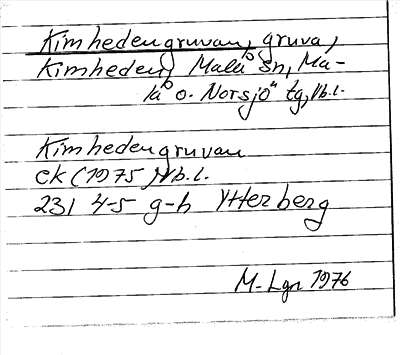 Kimhedengruvan, gruva,
Kimheden, Malå sn, Ma-
lå o. Norsjö tg, Vb.l.
Kimhedengruvan
ek (1975) Vb.l.
231 4-5 g-h Ytterberg
M-Lgn 1976